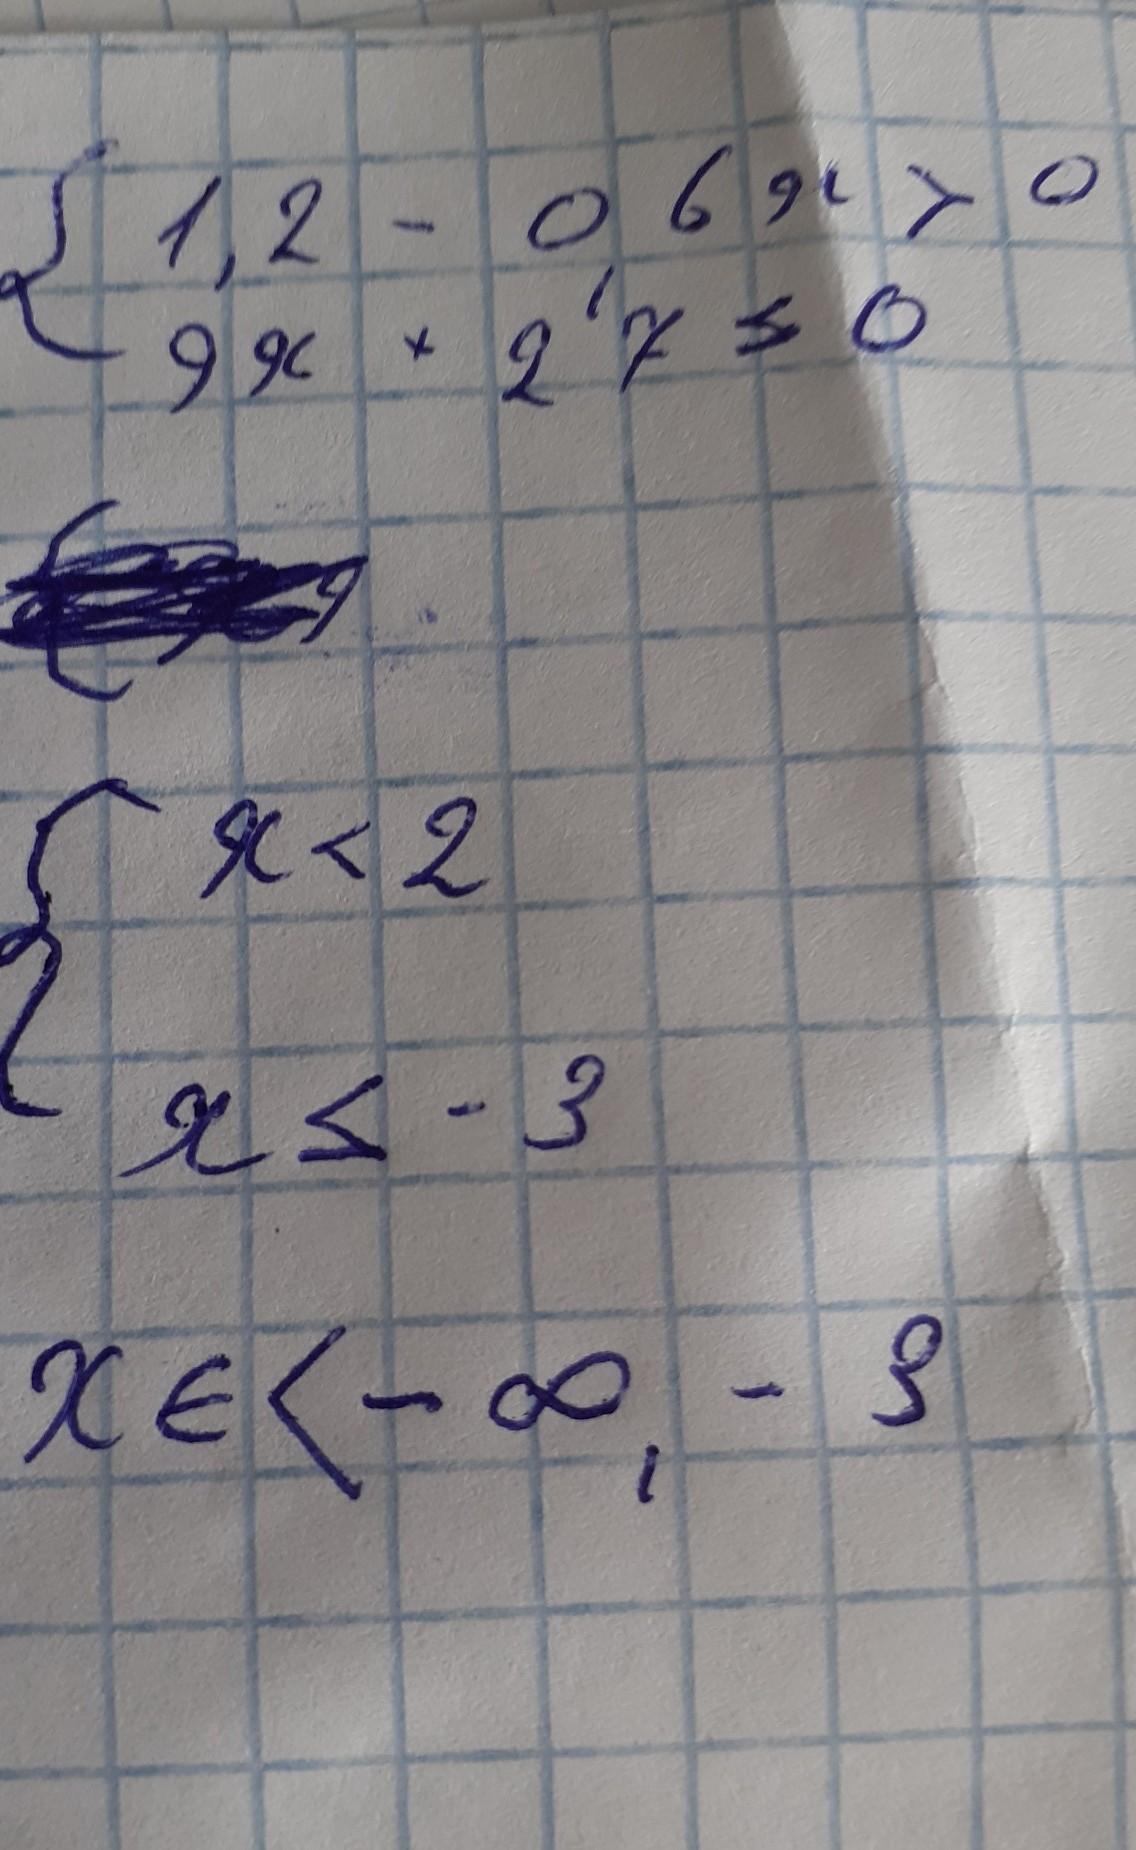 { 1,2 - 0,6x > 0
9x + 27 ≤ 0
{ x < 2
x ≤ -3
x ∈ < - ∞, - 3